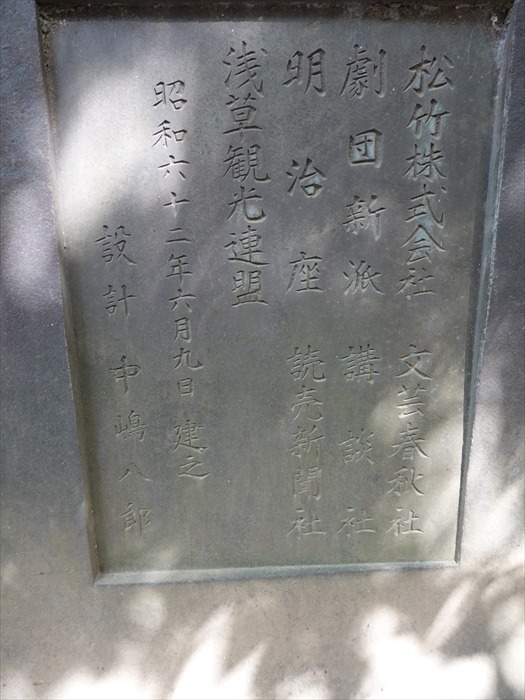 松竹株式会社 文芸春秋社
劇団新派 講談社
明治座 読売新聞社
浅草観光連盟
昭和六十二年六月九日 建之
設計 中嶋八郎